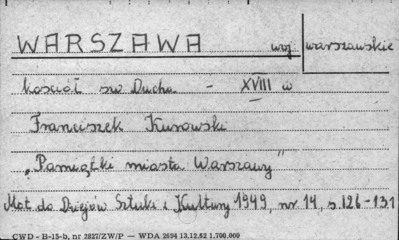 WARSZAWA woj. warszawskie
kościół św Ducha - XVIII w
Franciszek Kurowski
„Pamiątki miasta Warszawy"
Mat. do Dziejów Sztuki i Kultury 1949, nr 14, s. 126-131
CWD - B-15-b, nr 2827/ZW/P — WDA 2694 13.12.62 1.700.000